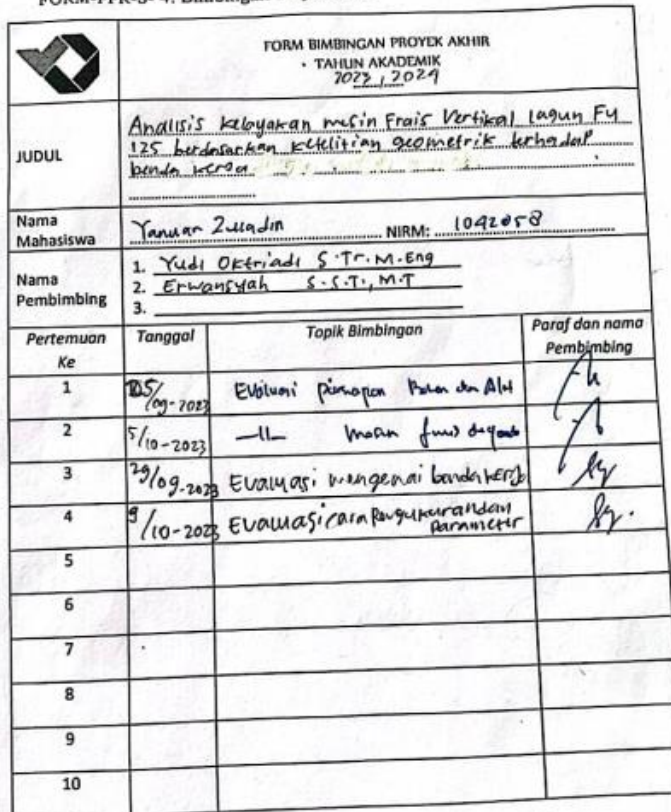 FORM BIMBINGAN PROYEK AKHIR
TAHUN AKADEMIK
2023 / 2024
JUDUL
Analisis kelayakan mesin Frais Vertikal lagun FU
125 berdasarkan ketelitian geometrik terhadap
benda kerja
Nama Mahasiswa
Yanuar NIRM: 1042058
Nama Pembimbing
1. Yudi Oktriadi S.Tr. M.Eng
2. Erwansyah S.S.T., M.T
3.
Pertemuan Ke Tanggal Topik Bimbingan Paraf dan nama Pembimbing
1 /09-2023 dan Alat
2 5/10-2023 -11-
3 29/09-2023 Evaluasi mengenai benda kerja
4 9/10-2023 Evaluasi cara Pengukuran dan
Parameter
5
6
7
8
9
10